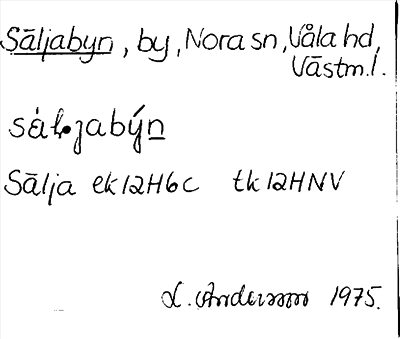 Säljabyn, by, Nora sn, Våla hd,
Västm. l.
sàl̢·jabýn
Sälja ek 12H6c tk 12HNV
L. Andersson 1975.